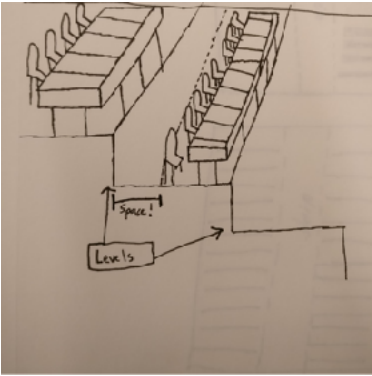 Space!
Levels